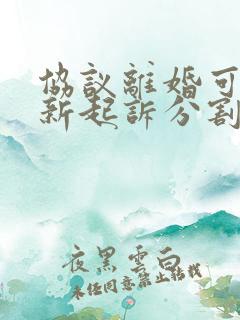 協議離婚可
新起訴分割
夜黑雲白
未经同意禁止转载